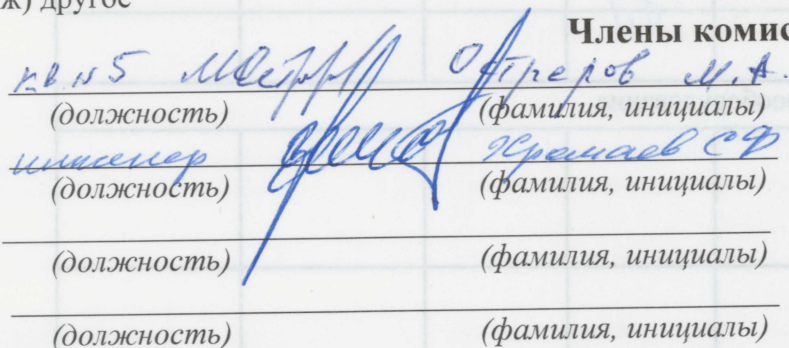 ж) другое
Члены комис
Остреров М.А.
(должность) (фамилия, инициалы)
инженер Хромаев С Ф
(должность) (фамилия, инициалы)
(должность) (фамилия, инициалы)
(должность) (фамилия, инициалы)